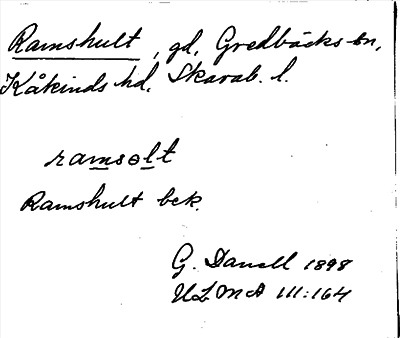 Ramshult, gd, Gredbäcks sn,
Kåkinds hd, Skarab. l.
ramsɵlt
Ramshult bek.
G. Danell 1898
ULMA 111:164